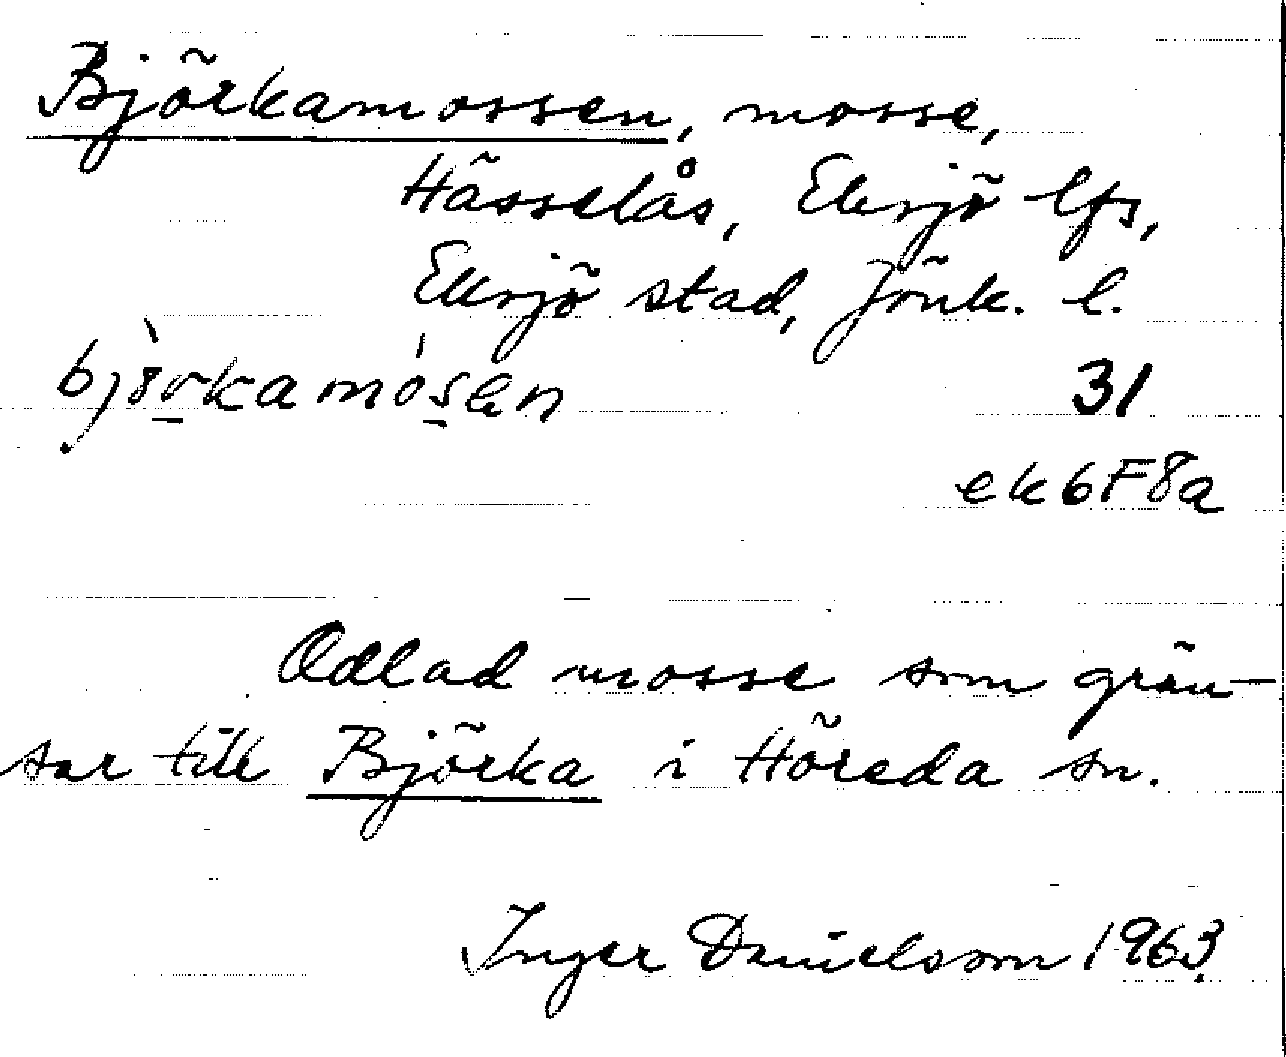 Björkamossen, mosse,
Hässelås, Eksjö lfs,
Eksjö stad, Jönk. l.
31
ek6F8a
Odlad mosse som grän-
sar till Björka i Höreda sn.
Inger Danielsson 1963